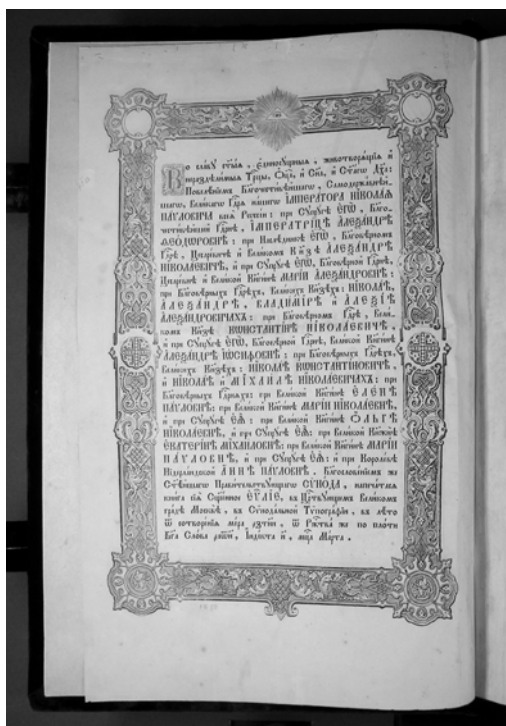 Во славу ст҃ыѧ, є҆диносꙋщныѧ, животворѧщїѧ и҆
нераздѣлимыѧ Трⷪ҇цы, Ѻ҆ц҃а̀, и҆ Сн҃а, и҆ Ст҃агѡ Дх҃а:
Повелѣнїемъ Благочестивѣйшагѡ, Самодержавнѣй-
шагѡ, Великагѡ Гдⷭ҇рѧ нашегѡ ИМПЕРАТОРА НІКОЛАѦ
ПАѴЛОВИЧА всеѧ̀ Рѡссїи: при Сꙋпрꙋгѣ Є҆ГѠ̀, Благо-
честивѣйшей Гдⷭ҇рнѣ, ИМПЕРАТРИЦѢ АЛЕѮАНДРѢ
ѲЕѠДѠРОВНѢ: при Наслѣдникѣ Є҆ГѠ̀, Благовѣрномъ
Гдⷭ҇рѣ, Цесаревичѣ и҆ Великомъ Кнѧ́зѣ АЛЕѮАНДРѢ
НІКОЛАЕВИЧѢ, и҆ при Сꙋпрꙋгѣ Є҆ГѠ̀, Благовѣрной Гдⷭ҇рнѣ,
Цесаревнѣ и҆ Великой Кнѧги́нѣ МАРІИ АЛЕѮАНДРОВНѢ:
при Благовѣрныхъ Гдⷭ҇рѣхъ, Великихъ Кнѧзѣхъ: НІКОЛАѢ,
АЛЕѮАНДРѢ, ВЛАДИМІРѢ и҆ АЛЕѮІѢ
АЛЕѮАНДРОВИЧАХЪ: при Благовѣрномъ Гдⷭ҇рѣ, Вели-
комъ Кнѧ́зѣ КѠНСТАНТІНѢ НІКОЛАЕВИЧѢ,
и҆ при Сꙋпрꙋгѣ Є҆ГѠ̀, Благовѣрной Гдⷭ҇рнѣ, Великой Кнѧги́нѣ
АЛЕѮАНДРѢ ІѠСИФОВНѢ: при Благовѣрныхъ Гдⷭ҇рѣхъ,
Великихъ Кнѧзѣхъ: НІКОЛАѢ КѠНСТАНТІНОВИЧѢ,
и҆ НІКОЛАѢ и҆ МІХАИЛѢ НІКОЛАЕВИЧАХЪ: при
Благовѣрныхъ Гдⷭ҇рнѧхъ: при Великой Кнѧги́нѣ ЕЛЕНѢ
ПАѴЛОВНѢ: при Великой Кнѧги́нѣ МАРІИ НІКОЛАЕВНѢ,
и҆ при Сꙋпрꙋгѣ Є҆Ѧ̀: при Великой Кнѧги́нѣ О҆ЛЬГѢ
НІКОЛАЕВНѢ, и҆ при Сꙋпрꙋгѣ Є҆Ѧ̀: при Великой Кнѧжнѣ
ЕКАТЕРІНѢ МІХАИЛОВНѢ: при Великой Кнѧги́нѣ МАРІИ
ПАѴЛОВНѢ, и҆ при Сꙋпрꙋгѣ Є҆Ѧ̀: и҆ при Королевѣ
Нідерландской АННѢ ПАѴЛОВНѢ. Благословенїемъ же
Ст҃ѣйшагѡ Правительствꙋющагѡ СѴНОДА, напечатасѧ
книга сїѧ̀ Сщ҃енное ЕѴⷢ҇ЛІЕ, въ Црⷭ҇твꙋющемъ Великомъ
градѣ Москвѣ, въ Сѵнодальной Тѵпографїи, въ лѣто
ѿ сотворенїѧ мїра ҂зтн҃ѕ, ѿ Рж҃тва̀ же по плоти
Бг҃а Сло́ва ҂аѡм҃и, І҆ндїкта ѕ҃, мцⷭ҇а Марта.